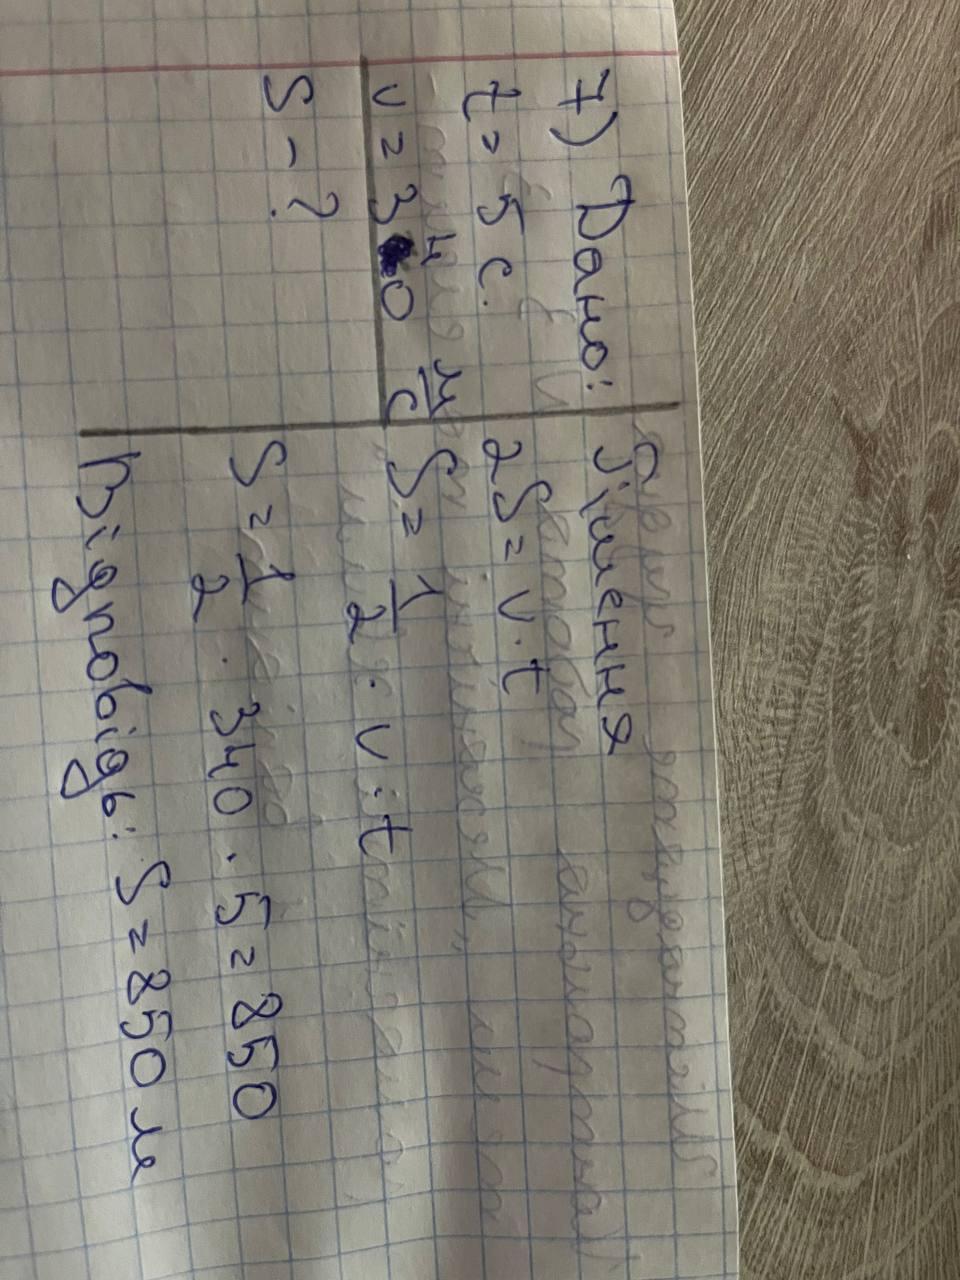 7) Дано:
t = 5 c.
v = 340 м/c
S - ?
Рішення
2S = v · t
S = 1/2 · v · t
S = 1/2 · 340 · 5 = 850
Відповідь: S = 850 м